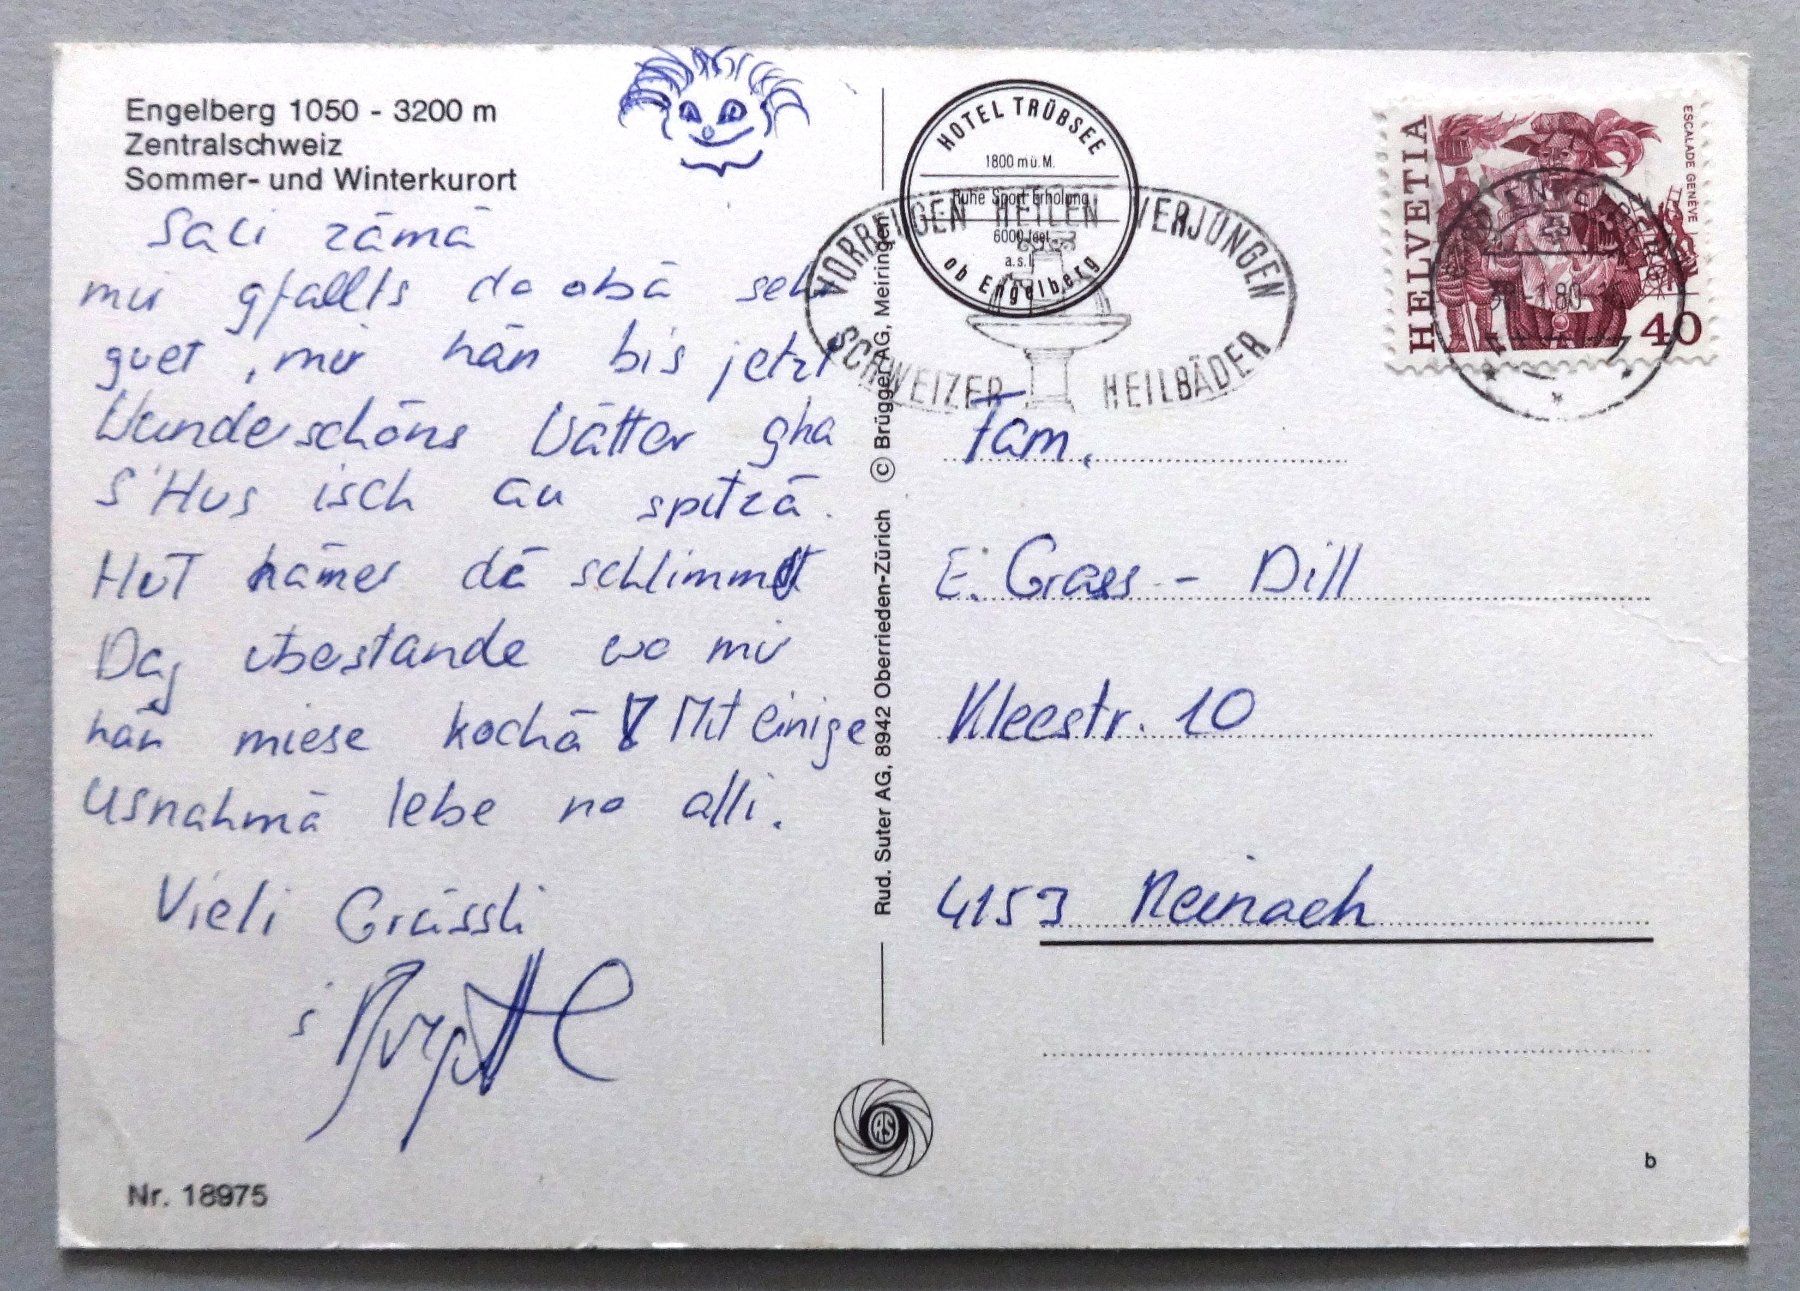 Engelberg 1050 - 3200 m
Zentralschweiz
Sommer- und Winterkurort
Sali zämä
mir gfallts do obä sehr
guet, mir hän bis jetzt
Wunderschöns Wätter gha
S'Hus isch au spitzä.
Hüt hämer dä schlimmst
Dag überstande wo mir
hän miese kochä! Mit einige
Usnahmä lebe no alli.
Vieli Grüssli
Nr. 18975
Rud. Suter AG, 8942 Oberrieden-Zürich © Brügger AG, Meiringen
HOTEL TRÜBSEE
1800 m ü. M.
Ruhe Sport Erholung
6000 feet
a.s.l.
ob Engelberg
VORBEUGEN HEILEN VERJÜNGEN
SCHWEIZER HEILBÄDER
HELVETIA
ESCALADE GENÈVE
40
ENGELBERG
-1.80
Fam.
E. Grass - Dill
Kleestr. 10
4153 Reinach
RS
b